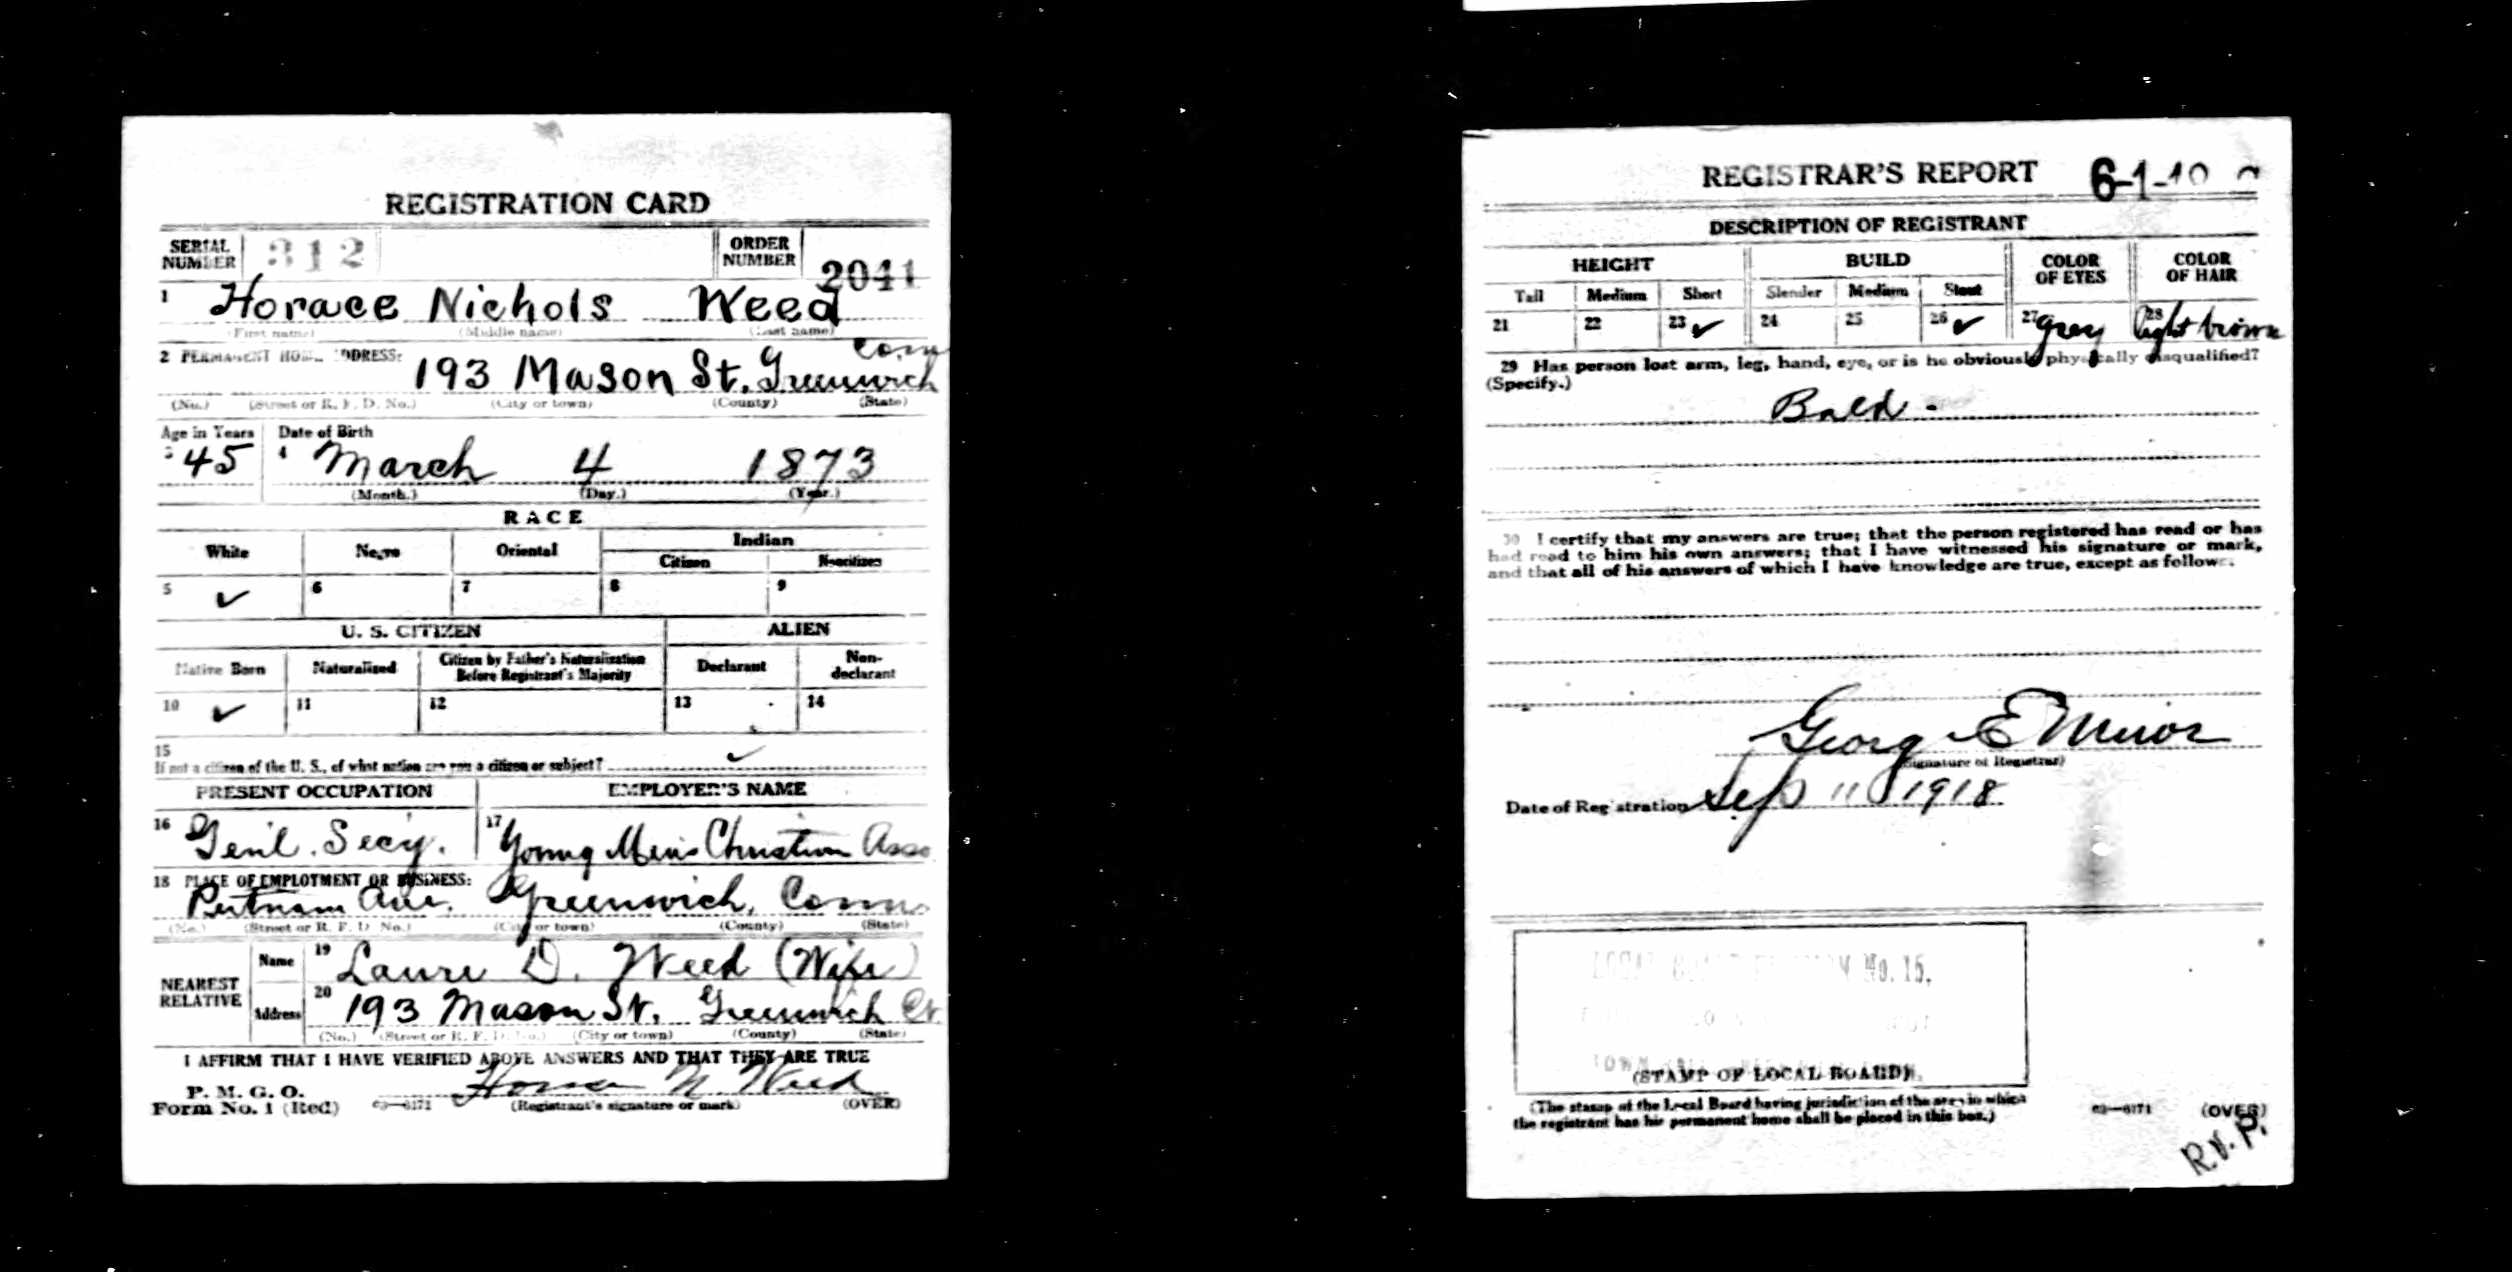 REGISTRATION CARD
SERIAL NUMBER 312 ORDER NUMBER 2041
1 Horace Nichols Weed
(First name) (Middle name) (Last name)
2 PERMANENT HOME ADDRESS: Conn
193 Mason St. Greenwich
(No.) (Street or R. F. D. No.) (City or town) (County) (State)
Age in Years Date of Birth
3 45 4 March 4 1873
(Month.) (Day.) (Year.)
RACE
White Negro Oriental Indian
Citizen Noncitizen
5 ✓ 6 7 8 9
U. S. CITIZEN ALIEN
Native Born Naturalized Citizen by Father's Naturalization Before Registrant's Majority Declarant Non-declarant
10 ✓ 11 12 13 14
15
If not a citizen of the U. S., of what nation are you a citizen or subject? ✓
PRESENT OCCUPATION EMPLOYER'S NAME
16 Gen'l. Secy. 17 Young Men's Christian Asso
18 PLACE OF EMPLOYMENT OR BUSINESS:
Putnam Ave. Greenwich, Conn.
(No.) (Street or R. F. D. No.) (City or town) (County) (State)
NEAREST RELATIVE
Name 19 Laura D. Weed (Wife)
Address 20 193 Mason St. Greenwich Ct.
(No.) (Street or R. F. D. No.) (City or town) (County) (State)
I AFFIRM THAT I HAVE VERIFIED ABOVE ANSWERS AND THAT THEY ARE TRUE
P. M. G. O.
Form No. 1 (Red) 03—6171 Horace N. Weed
(Registrant's signature or mark) (OVER)
REGISTRAR'S REPORT 6-1-
DESCRIPTION OF REGISTRANT
HEIGHT BUILD COLOR OF EYES COLOR OF HAIR
Tall Medium Short Slender Medium Stout
21 22 23 ✓ 24 25 26 ✓ 27 grey 28 light brown
29 Has person lost arm, leg, hand, eye, or is he obviously physically disqualified?
(Specify.)
Bald.
30 I certify that my answers are true; that the person registered has read or has
had read to him his own answers; that I have witnessed his signature or mark,
and that all of his answers of which I have knowledge are true, except as follows:
George E Minor
(Signature of Registrar)
Date of Registration Sep 11 1918
No. 15.
(STAMP OF LOCAL BOARD)
(The stamp of the Local Board having jurisdiction of the area in which
the registrant has his permanent home shall be placed in this box.)
03—6171 (OVER)
R.V.P.